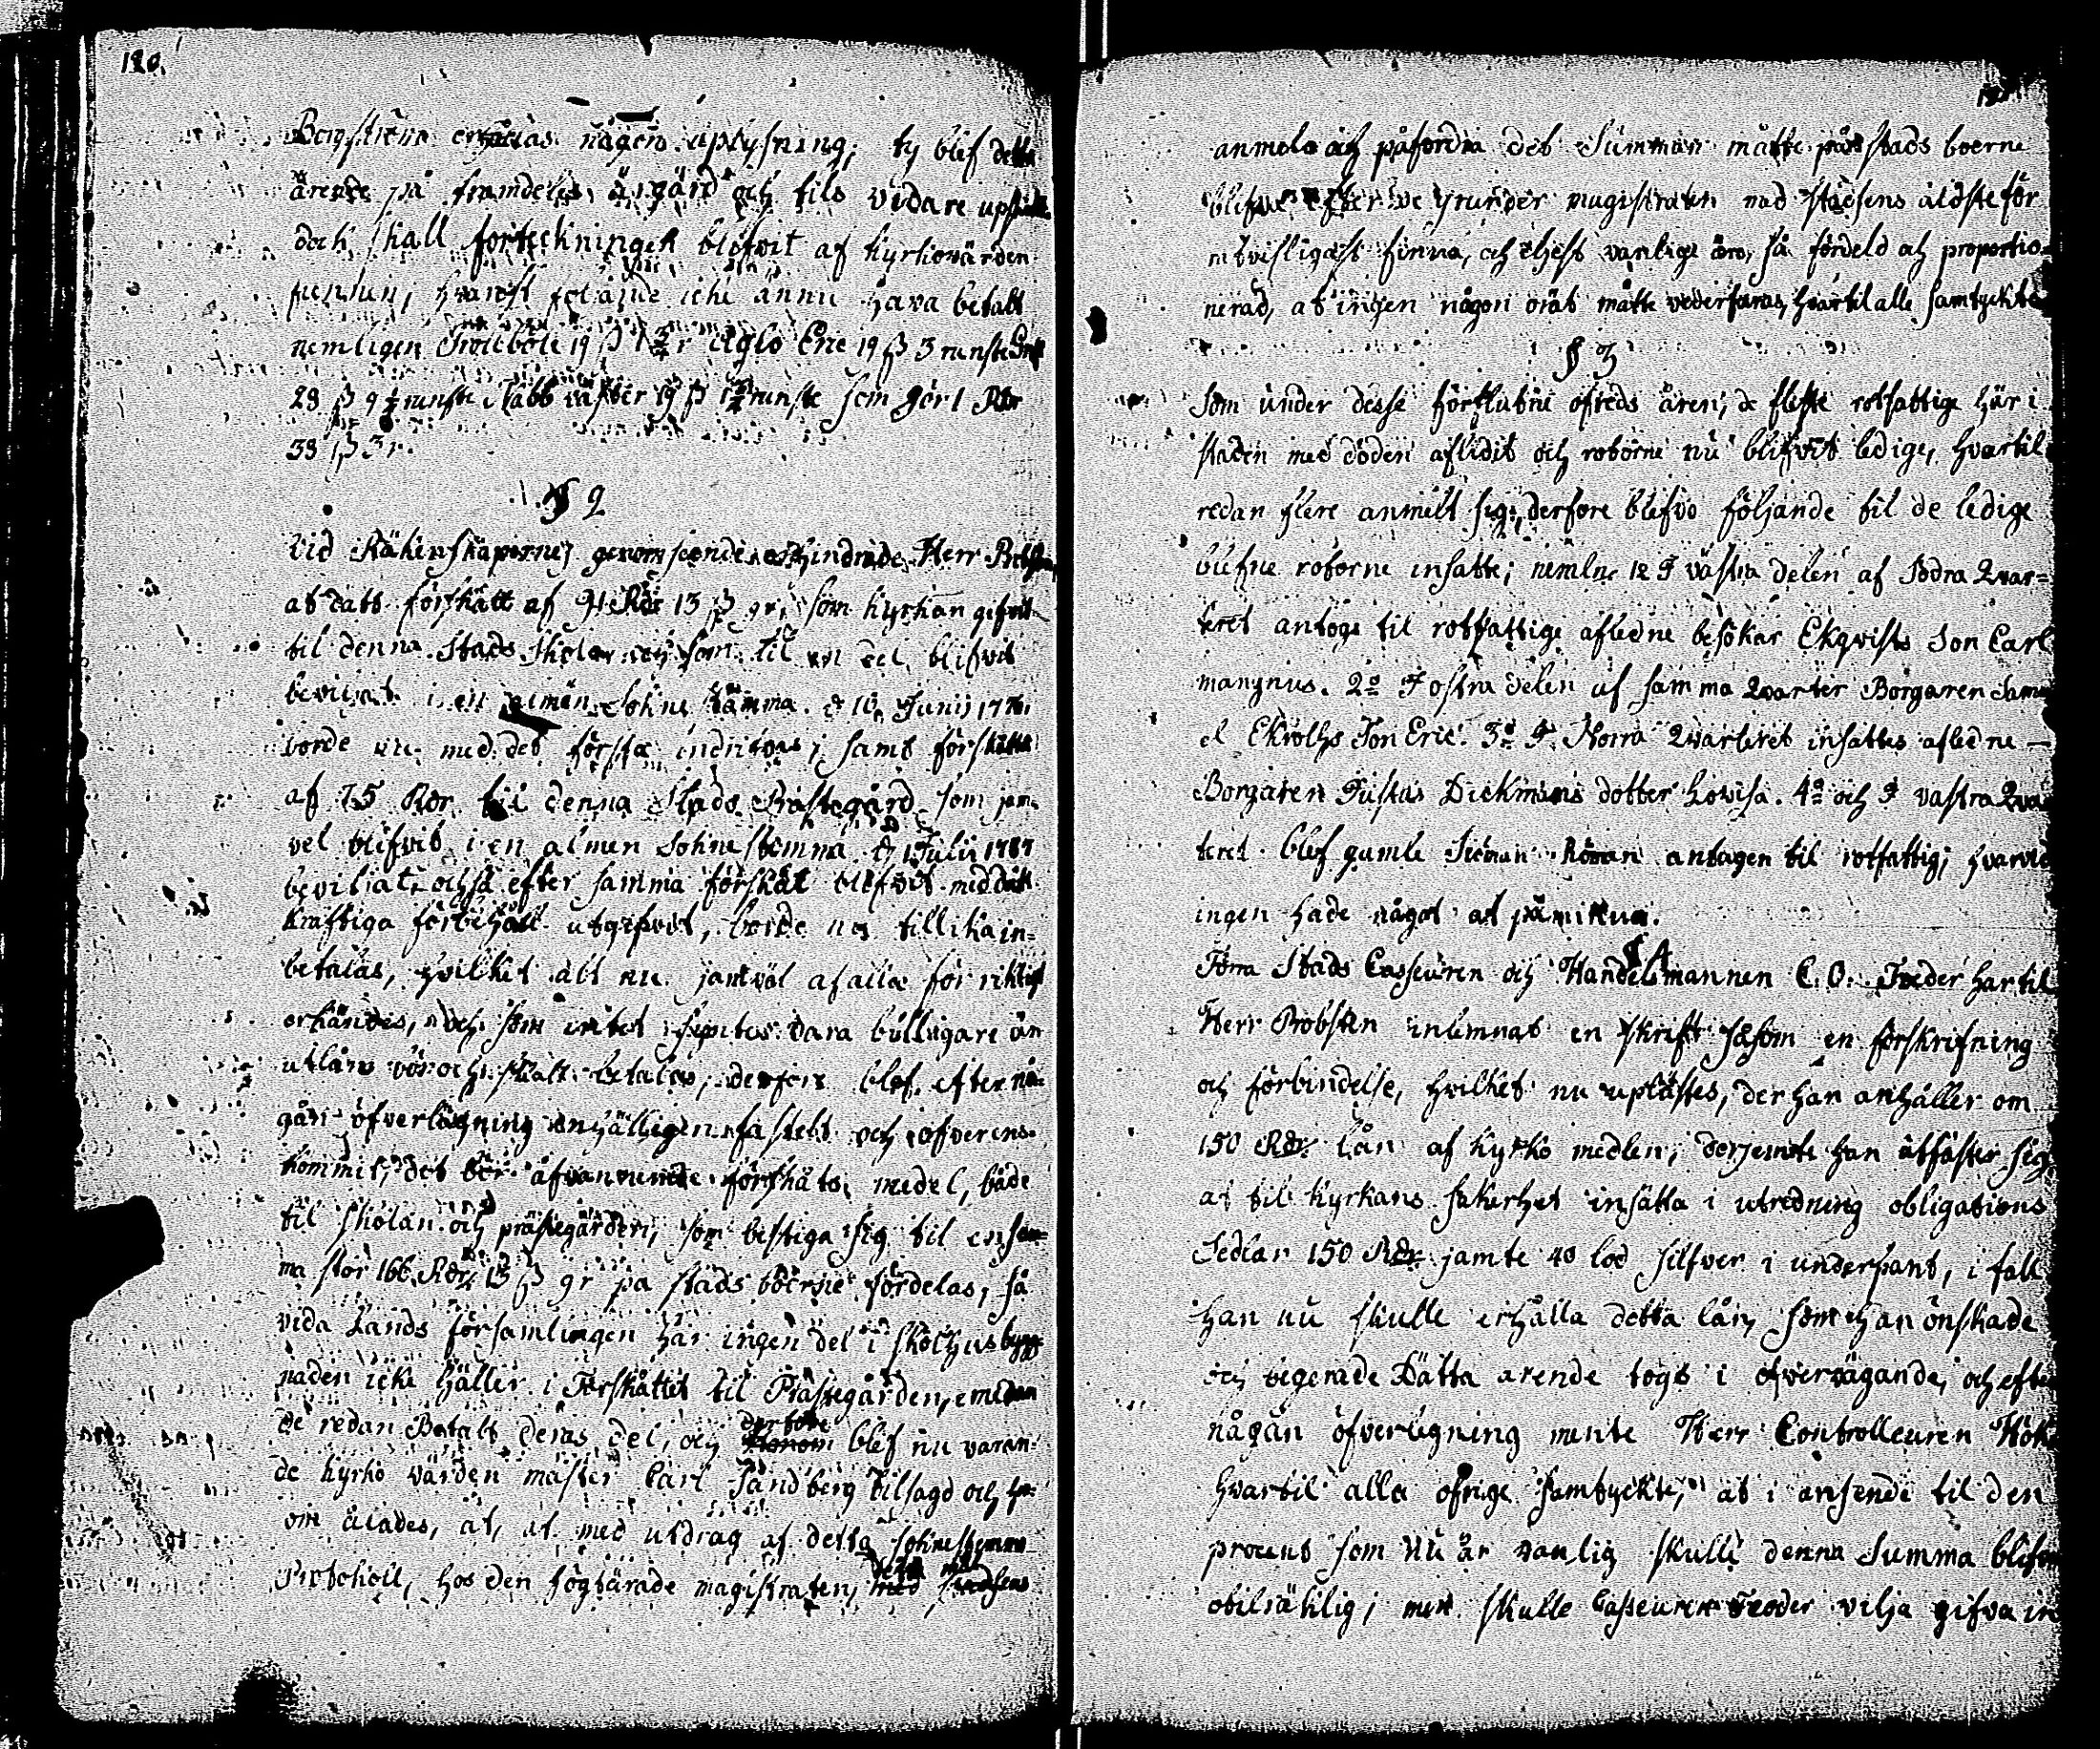 120.
Bergstrena erhållas någon uplysning; ty blef detta
ärende på framdeles åtgärd och tils vidare
doch skall förteckningen blefvit af kyrkiovärden
hvarest följande icke ännu hava betalt
nemligen Trollböle 19 ß r Eric 19 ß 3 runste
28 ß 9 runste Stabb väster 19 ß runste som gör 1 Rdr
38 ß 3 r.
§ 2
Vid Räkenskapernes genomseende Herr
at förskått af 91 Rdr 13 ß 9 r, som kyrkan gifvit
til denna Stads Skola och som til en del blifvit
beviljat i en almän Sokne stämma d 16 Junij
borde nu med det första indrifvas, samt förskått
af 75 Rdr til denna Stads Prästegård som jem-
vel blifvit i en almen Sokne stemma d 1 Julii 1787
beviljat, också efter samma förskåt blefvit med
kraftiga förbehåll utgifvit, borde nu tillika in-
betalas, hvilket alt nu jamväl af alla för riktigt
erkändes, och som intet syntes vara billigare än
utlånt vore och skall betalas, derföre blef efter nå-
gån öfverlägning enhälligen fästelt och öfverens-
kommit, det bör åfvannemde förskåts medel, både
til skolan och prästegården, som bestiga sig til en som-
ma stor 166 Rdr 13 ß 9 r på stads boerne fördelas, så
vida Lands församlingen har ingen del i Skolhusbygg-
naden icke häller i Förskåttet til Prästegården, emedan
de redan Betalt deras del, och derföre blef nu varan-
de kyrko värden mäster Carl Sandberg tilsagd och ho-
om ålades, at, at med utdrag af detta sokne stemmo
Protokoll, hos den högtärade magistraten, med stadsens
anmela och påfordra det Summan måtte på stads boerne
blifva efter de grunder magistraten med stadsens äldste för
rätvisligast finna, och eljest vanlige äro, så fördeld och proportio-
nerad, at ingen någon orät måtte vederfaras, hvartil alle samtyckte
§ 3
Som under desse förflutne ofreds åren, de fleste rotfattige här i
staden med döden aflidit och roterne nu blifvit ledige, hvartil
redan flere anmelt sig, derföre blefvo följande til de ledige
blefne roterne insatte; nemln. 1o I västra delen af Södra Qvar-
teret antogs til rotfattige afledne besökar Ekqvists Son Carl
mangnus. 2o I östra delen af samma Qvarter Borgaren Samu-
el Ekrolhs Son Eric. 3o I Norra Qvarteret insattes afledne
Borgaren Gustas Dickmans dotter Lowisa. 4o och I västra Qvar
teret blef gamle antagen til rotfattig; hvarvid
ingen hade något at påminna.
§ 4
Förra Stads Casseuren och Handelsmannen C. O. har til
Herr Probsten inlemnat en skrift såsom en förskrifning
och förbindelse, hvilket nu uplästes, der han anhåller om
150 Rdr. Lån af kyrko medlen, derjemte han utfäster sig
at til kyrkans säkerhet insätta i utredning obligations
Sedlar 150 Rdr jämte 40 lod silfver i underpant, i fall
han nu skulle erhålla detta lån, som han önskade
och begerade Dätta ärende togs i öfvervägande, och efter
någån öfverlegning mente Herr Controlleuren Hök
hvartil alla öfrige samtyckte, at i anseende til den
procent som nu är vanlig skulle denna Summa blifva
otilräklig; men skulle Casseuren vilja gifva in